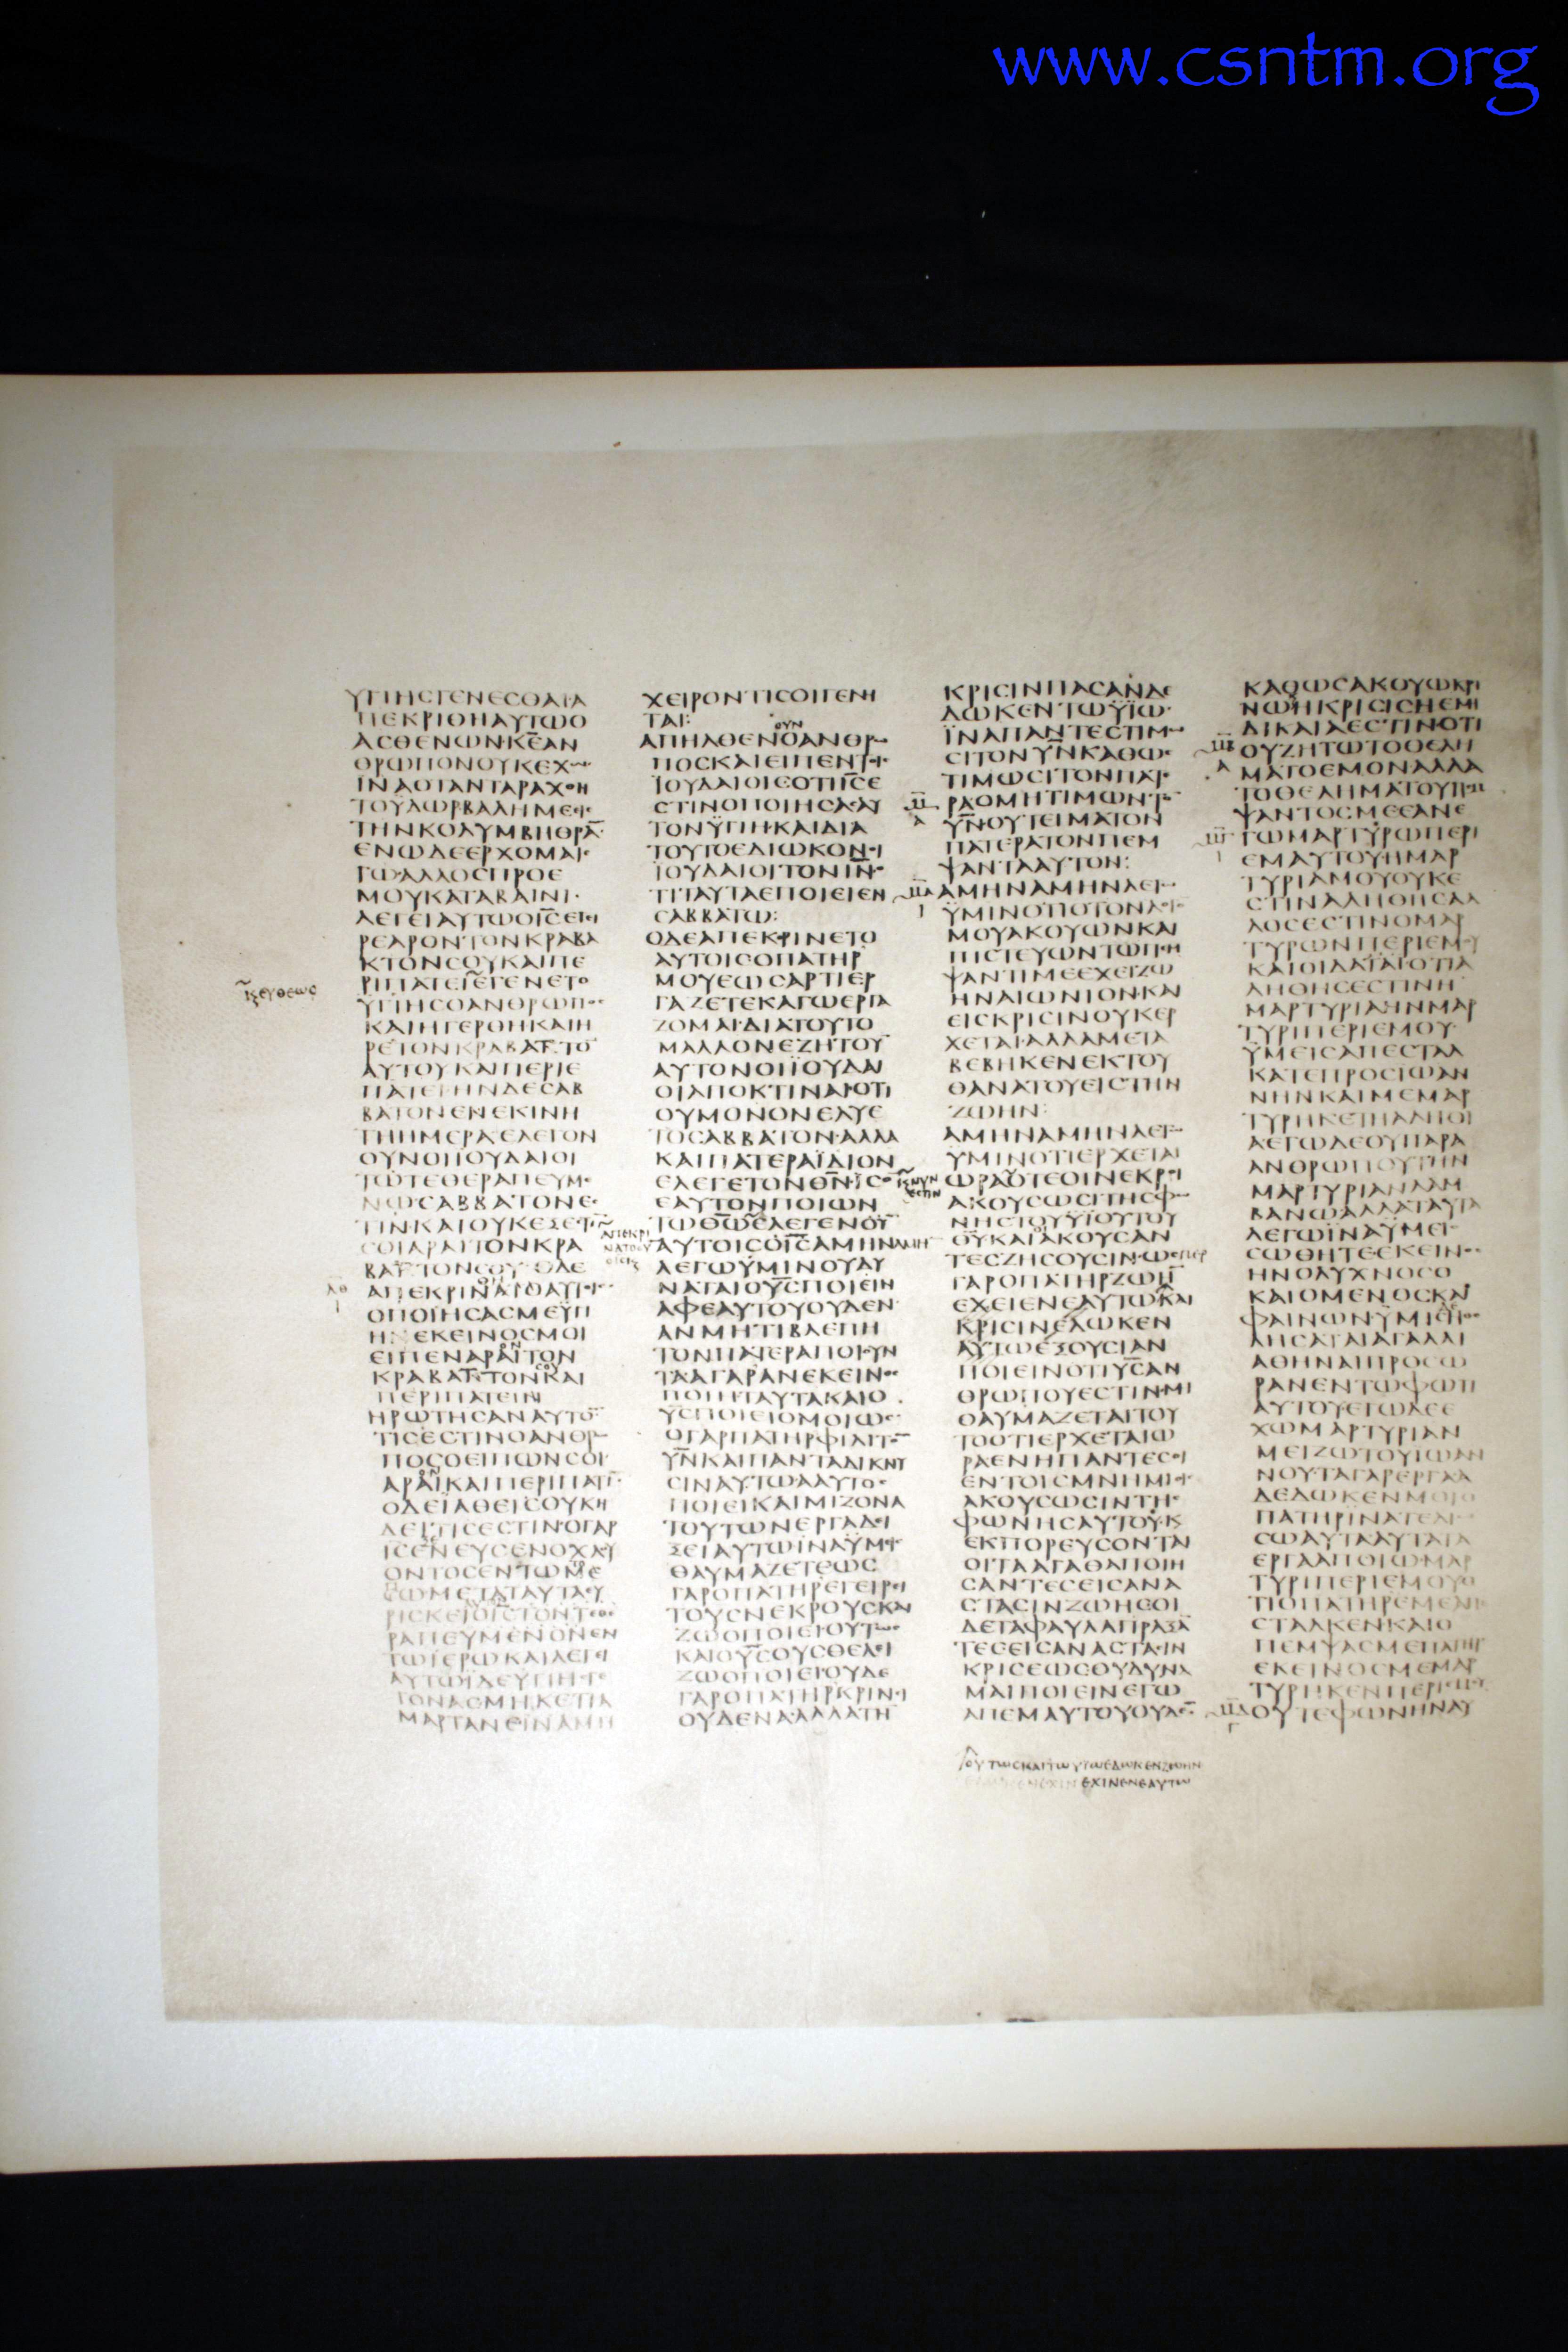 www.csntm.org
ΥΓΙΗϹΓΕΝΕϹΘΑΙΑ
ΠΕΚΡΙΘΗΑΥΤΩΟ
ΑϹΘΕΝΩΝΚ̅Ε̅ΑΝ
ΘΡΩΠΟΝΟΥΚΕΧΩ
ΙΝΑΟΤΑΝΤΑΡΑΧΘΗ
ΤΟΫΔΩΡΒΑΛΗΜΕΕΙϹ
ΤΗΝΚΟΛΥΜΒΗΘΡΑ̅
ΕΝΩΔΕΕΡΧΟΜΑΙΕ
ΓΩΑΛΛΟϹΠΡΟΕ
ΜΟΥΚΑΤΑΒΑΙΝΙ
ΛΕΓΕΙΑΥΤΩΟΙ̅Ϲ̅ΕΓΕΙ
ΡΕΑΡΟΝΤΟΝΚΡΑΒΑ
ΚΤΟΝϹΟΥΚΑΙΠΕ
ΡΙΠΑΤΕΙΕΓΕΝΕΤΟ
ΙϚΕΥΘΕΩϹ
ΥΓΙΗϹΟΑΝΘΡΩΠΟϹ
ΚΑΙΗΓΕΡΘΗΚΑΙΗ
ΡΕΤΟΝΚΡΑΒΑΤΤΟ̅
ΑΥΤΟΥΚΑΙΠΕΡΙΕ
ΠΑΤΕΙΗΝΔΕϹΑΒ
ΒΑΤΟΝΕΝΕΚΙΝΗ
ΤΗΗΜΕΡΑΕΛΕΓΟΝ
ΟΥΝΟΙΪΟΥΔΑΙΟΙ
ΤΩΤΕΘΕΡΑΠΕΥΜΕ
ΝΩϹΑΒΒΑΤΟΝΕϹ
ΤΙΝΚΑΙΟΥΚΕΞΕϹΤΙ̅
ϹΟΙΑΡΑΙΤΟΝΚΡΑ
ΒΑΤΤΟΝϹΟΥΟΔΕ
ΑΠΕΚΡΙΝΑΤΟΑΥΤΟΙϹ
ΟΠΟΙΗϹΑϹΜΕΫΓΙ
ΕΚΕΙΝΟϹΜΟΙ
ΕΙΠΕΝΑΡΑΙΤΟΝ
ΚΡΑΒΑΤΤΟΝΚΑΙ
ΠΕΡΙΠΑΤΕΙΝ
ΗΡΩΤΗϹΑΝΑΥΤΟ̅
ΤΙϹΕϹΤΙΝΟΑΝΘΡΩ
ΠΟϹΟΕΙΠΩΝϹΟΙ
ΑΡΑΙΚΑΙΠΕΡΙΠΑΤΙ̅
ΟΔΕΪΑΘΕΙϹΟΥΚΗ
ΔΕΙΤΙϹΕϹΤΙΝΟΓΑΡ
Ι̅Ϲ̅ΕΝΕΥϹΕΝΟΧΛΟΥ
ΟΝΤΟϹΕΝΤΩΜΕ
ϹΩΜΕΤΑΤΑΥΤΑΕΥ
ΡΙϹΚΕΙΟΙ̅Ϲ̅ΤΟΝΤΕΘΕ
ΡΑΠΕΥΜΕΝΟΝΕΝ
ΤΩΙΕΡΩΚΑΙΛΕΓΕΙ
ΑΥΤΩΪΔΕΥΓΙΗϹΓΕ
ΓΟΝΑϹΜΗΚΕΤΙΑ
ΜΑΡΤΑΝΕΙΝΑΜΗ
ΧΕΙΡΟΝΤΙϹΟΙΓΕΝΗ
ΤΑΙ:
ΟΥΝ
ΑΠΗΛΘΕΝΟΑΝΘΡΩ
ΠΟϹΚΑΙΕΙΠΕΝΤΟΙϹ
ΪΟΥΔΑΙΟΙϹΟΤΙΙ̅Ϲ̅Ε
ϹΤΙΝΟΠΟΙΗϹΑϹΑΥ
ΤΟΝΫΓΙΗΚΑΙΔΙΑ
ΤΟΥΤΟΕΔΙΩΚΟΝΟΙ
ΪΟΥΔΑΙΟΙΤΟΝΙ̅Ν̅Ο
ΤΙΤΑΥΤΑΕΠΟΙΕΙΕΝ
ϹΑΒΒΑΤΩ:
ΟΔΕΑΠΕΚΡΙΝΕΤΟ
ΑΥΤΟΙϹΟΠΑΤΗΡ
ΜΟΥΕΩϹΑΡΤΙΕΡ
ΓΑΖΕΤΕΚΑΓΩΕΡΓΑ
ΖΟΜΑΙΔΙΑΤΟΥΤΟ
ΜΑΛΛΟΝΕΖΗΤΟΥ
ΑΥΤΟΝΟΙΪΟΥΔΑΙ
ΟΙΑΠΟΚΤΙΝΑΙΟΤΙ
ΟΥΜΟΝΟΝΕΛΥΕ
ΤΟϹΑΒΒΑΤΟΝΑΛΛΑ
ΚΑΙΠΑΤΕΡΑΪΔΙΟΝ
ΕΛΕΓΕΤΟΝΘ̅Ν̅ΙϹΟ̅
ΕΑΥΤΟΝΠΟΙΩΝ
ΤΩΘ̅Ω̅ΕΛΕΓΕΝΟΥ̅
ΑΥΤΟΙϹΟΙ̅Ϲ̅ΑΜΗΝΑΜΗΝ
ΛΕΓΩΫΜΙΝΟΥΔΥ
ΝΑΤΑΙΟΥ̅Ϲ̅ΠΟΙΕΙΝ
ΑΦΕΑΥΤΟΥΟΥΔΕΝ
ΑΝΜΗΤΙΒΛΕΠΗ
ΤΟΝΠΑΤΕΡΑΠΟΙΟΥΝ
ΤΑΑΓΑΡΑΝΕΚΕΙΝΟϹ
ΠΟΙΗΤΑΥΤΑΚΑΙΟ
Υ̅Ϲ̅ΠΟΙΕΙΟΜΟΙΩϹ
ΟΓΑΡΠΑΤΗΡΦΙΛΙΤΟ̅
Υ̅Ν̅ΚΑΙΠΑΝΤΑΔΙΚΝΥ
ϹΙΝΑΥΤΩΑΑΥΤΟϹ
ΠΟΙΕΙΚΑΙΜΙΖΟΝΑ
ΤΟΥΤΩΝΕΡΓΑΔΙ
ΞΕΙΑΥΤΩΙΝΑΫΜΕΙϹ
ΘΑΥΜΑΖΕΤΕΩϹ
ΓΑΡΟΠΑΤΗΡΕΓΕΙΡΕΙ
ΤΟΥϹΝΕΚΡΟΥϹΚΑΙ
ΖΩΟΠΟΙΕΙΟΥΤΩϹ
ΚΑΙΟΥ̅Ϲ̅ΟΥϹΘΕΛΕΙ
ΖΩΟΠΟΙΕΙΟΥΔΕ
ΓΑΡΟΠΑΤΗΡΚΡΙΝΕΙ
ΟΥΔΕΝΑΑΛΛΑΤΗ̅
ΚΡΙϹΙΝΠΑϹΑΝΔΕ
ΔΩΚΕΝΤΩΫΪΩ
ΪΝΑΠΑΝΤΕϹΤΙΜΩ
ϹΙΤΟΝΥ̅Ν̅ΚΑΘΩϹ
ΤΙΜΩϹΙΤΟΝΠΑΤΕ
ΡΑΟΜΗΤΙΜΩΝΤΟ̅
Υ̅Ν̅ΟΥΤΕΙΜΑΤΟΝ
ΠΑΤΕΡΑΤΟΝΠΕΜ
ΨΑΝΤΑΑΥΤΟΝ:
ΑΜΗΝΑΜΗΝΛΕΓΩ
ΫΜΙΝΟΤΙΟΤΟΝΛΟΓΟ̅
ΜΟΥΑΚΟΥΩΝΚΑΙ
ΠΙϹΤΕΥΩΝΤΩΠΕΜ
ΨΑΝΤΙΜΕΕΧΕΙΖΩ
ΗΝΑΙΩΝΙΟΝΚΑΙ
ΕΙϹΚΡΙϹΙΝΟΥΚΕΡ
ΧΕΤΑΙΑΛΛΑΜΕΤΑ
ΒΕΒΗΚΕΝΕΚΤΟΥ
ΘΑΝΑΤΟΥΕΙϹΤΗΝ
ΖΩΗΝ:
ΑΜΗΝΑΜΗΝΛΕΓΩ
ΥΜΙΝΟΤΙΕΡΧΕΤΑΙ
ΩΡΑΟΤΕΟΙΝΕΚΡΟΙ
ΑΚΟΥϹΩϹΙΤΗϹΦΩ
ΝΗϹΤΟΥΫΪΟΥΤΟΥ
Θ̅Υ̅ΚΑΙΑΚΟΥϹΑΝ
ΤΕϹΖΗϹΟΥϹΙΝΩϹΠΕΡ
ΓΑΡΟΠΑΤΗΡΖΩΗ̅
ΕΧΕΙΕΝΕΑΥΤΩΚΑΙ
ΚΡΙϹΙΝΕΔΩΚΕΝ
ΑΥΤΩΕΞΟΥϹΙΑΝ
ΠΟΙΕΙΝΟΤΙΥ̅Ϲ̅ΑΝ
ΘΡΩΠΟΥΕϹΤΙΝΜΗ
ΘΑΥΜΑΖΕΤΑΙΤΟΥ
ΤΟΟΤΙΕΡΧΕΤΑΙΩ
ΡΑΕΝΗΠΑΝΤΕϹΟΙ
ΕΝΤΟΙϹΜΝΗΜΙΟΙϹ
ΑΚΟΥϹΩϹΙΝΤΗϹ
ΦΩΝΗϹΑΥΤΟΥΚ
ΕΚΠΟΡΕΥϹΟΝΤΑΙ
ΟΙΤΑΑΓΑΘΑΠΟΙΗ
ϹΑΝΤΕϹΕΙϹΑΝΑ
ϹΤΑϹΙΝΖΩΗϹΟΙ
ΔΕΤΑΦΑΥΛΑΠΡΑΞΑ̅
ΤΕϹΕΙϹΑΝΑϹΤΑϹΙΝ
ΚΡΙϹΕΩϹΟΥΔΥΝΑ
ΜΑΙΠΟΙΕΙΝΕΓΩ
ΑΠΕΜΑΥΤΟΥΟΥΔΕ̅
ΟΥΤΩϹΚΑΙΤΩΥΙΩΕΔΩΚΕΝΖΩΗΝ
ΕΧΙΝΕΝΕΑΥΤΩ
ΚΑΘΩϹΑΚΟΥΩΚΡΙ
ΝΩΗΚΡΙϹΙϹΗΕΜΗ
ΔΙΚΑΙΑΕϹΤΙΝΟΤΙ
ΟΥΖΗΤΩΤΟΘΕΛΗ
ΜΑΤΟΕΜΟΝΑΛΛΑ
ΤΟΘΕΛΗΜΑΤΟΥΠΕΜ
ΨΑΝΤΟϹΜΕΕΑΝΕ
ΓΩΜΑΡΤΥΡΩΠΕΡΙ
ΕΜΑΥΤΟΥΗΜΑΡ
ΤΥΡΙΑΜΟΥΟΥΚΕ
ϹΤΙΝΑΛΗΘΗϹΑΛ
ΛΟϹΕϹΤΙΝΟΜΑΡ
ΤΥΡΩΝΠΕΡΙΕΜΟΥ
ΚΑΙΟΙΔΑΤΑΙΟΤΙΑ
ΛΗΘΗϹΕϹΤΙΝΗ
ΜΑΡΤΥΡΙΑΗΝΜΑΡ
ΤΥΡΙΠΕΡΙΕΜΟΥ
ΫΜΕΙϹΑΠΕϹΤΑΛ
ΚΑΤΕΠΡΟϹΙΩΑΝ
ΝΗΝΚΑΙΜΕΜΑΡ
ΤΥΡΗΚΕΤΗΑΛΗΘΙ
ΑΕΓΩΔΕΟΥΠΑΡΑ
ΑΝΘΡΩΠΟΥΤΗΝ
ΜΑΡΤΥΡΙΑΝΛΑΜ
ΒΑΝΩΑΛΛΑΤΑΥΤΑ
ΛΕΓΩΪΝΑΫΜΕΙϹ
ϹΩΘΗΤΕΕΚΕΙΝΟϹ
ΗΝΟΛΥΧΝΟϹΟ
ΚΑΙΟΜΕΝΟϹΚΑΙ
ΦΑΙΝΩΝΫΜΙϹ
ΛΗϹΑΤΑΙΑΓΑΛΛΙ
ΑΘΗΝΑΙΠΡΟϹΩ
ΡΑΝΕΝΤΩΦΩΤΙ
ΑΥΤΟΥΕΓΩΔΕΕ
ΧΩΜΑΡΤΥΡΙΑΝ
ΜΕΙΖΩΤΟΥΙΩΑΝ
ΝΟΥΤΑΓΑΡΕΡΓΑΑ
ΔΕΔΩΚΕΝΜΟΙΟ
ΠΑΤΗΡΪΝΑΤΕΛΙ
ϹΩΑΥΤΑΑΥΤΑΤΑ
ΕΡΓΑΑΠΟΙΩΜΑΡ
ΤΥΡΙΠΕΡΙΕΜΟΥΟ
ΤΙΟΠΑΤΗΡΕΜΕΑΠΕ
ϹΤΑΛΚΕΝΚΑΙΟ
ΠΕΜΨΑϹΜΕΠΑΤΗΡ
ΕΚΕΙΝΟϹΜΕΜΑΡ
ΤΥΡΗΚΕΝΠΕΡΙΕΜΟΥ
ΟΥΤΕΦΩΝΗΝΑΥ